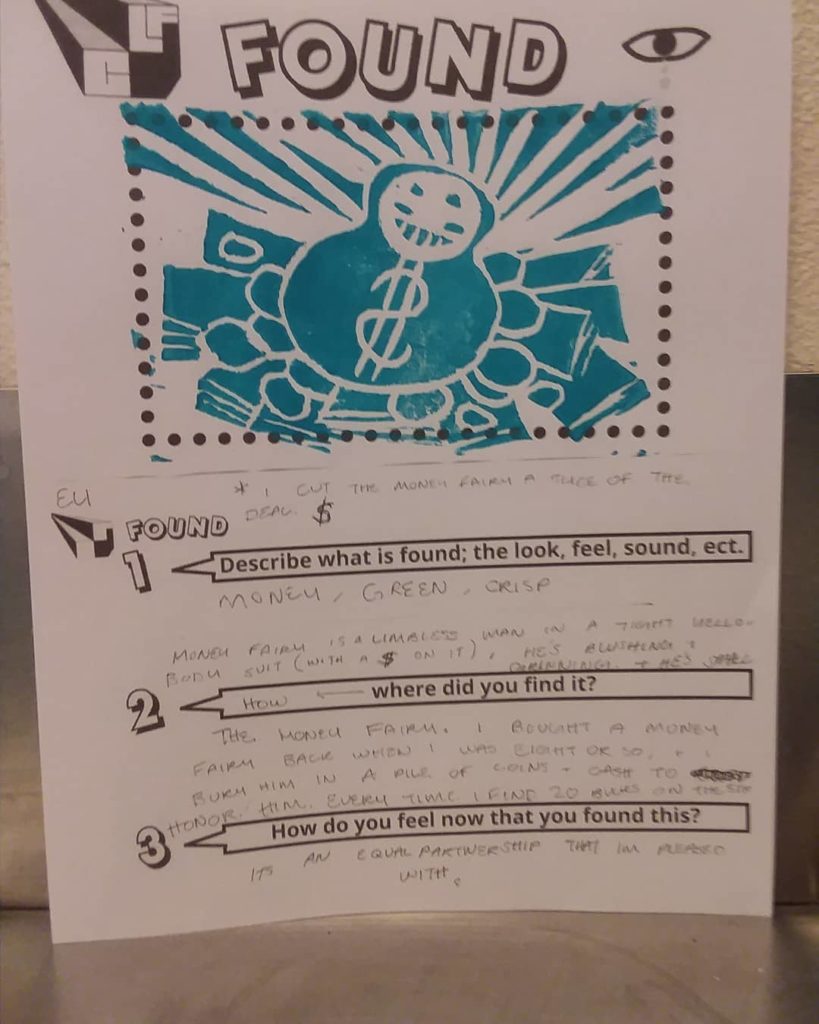 LF
C
FOUND
$
ELI
* I CUT THE MONEY FAIRY A SLICE OF THE
DEAL. $
FOUND
1 Describe what is found; the look, feel, sound, ect.
MONEY, GREEN, CRISP
MONEY FAIRY IS A LIMBLESS MAN IN A TIGHT YELLOW
BODY SUIT (WITH A $ ON IT), HE'S BLUSHING +
GRINNING. + HE'S SMALL
2 HOW where did you find it?
THE MONEY FAIRY. I BOUGHT A MONEY
FAIRY BACK WHEN I WAS EIGHT OR SO, + I
BURY HIM IN A PILE OF COINS + CASH TO
HONOR HIM. EVERY TIME I FIND 20 BUCKS ON THE
3 How do you feel now that you found this?
ITS AN EQUAL PARTNERSHIP THAT IM PLEASED
WITH.